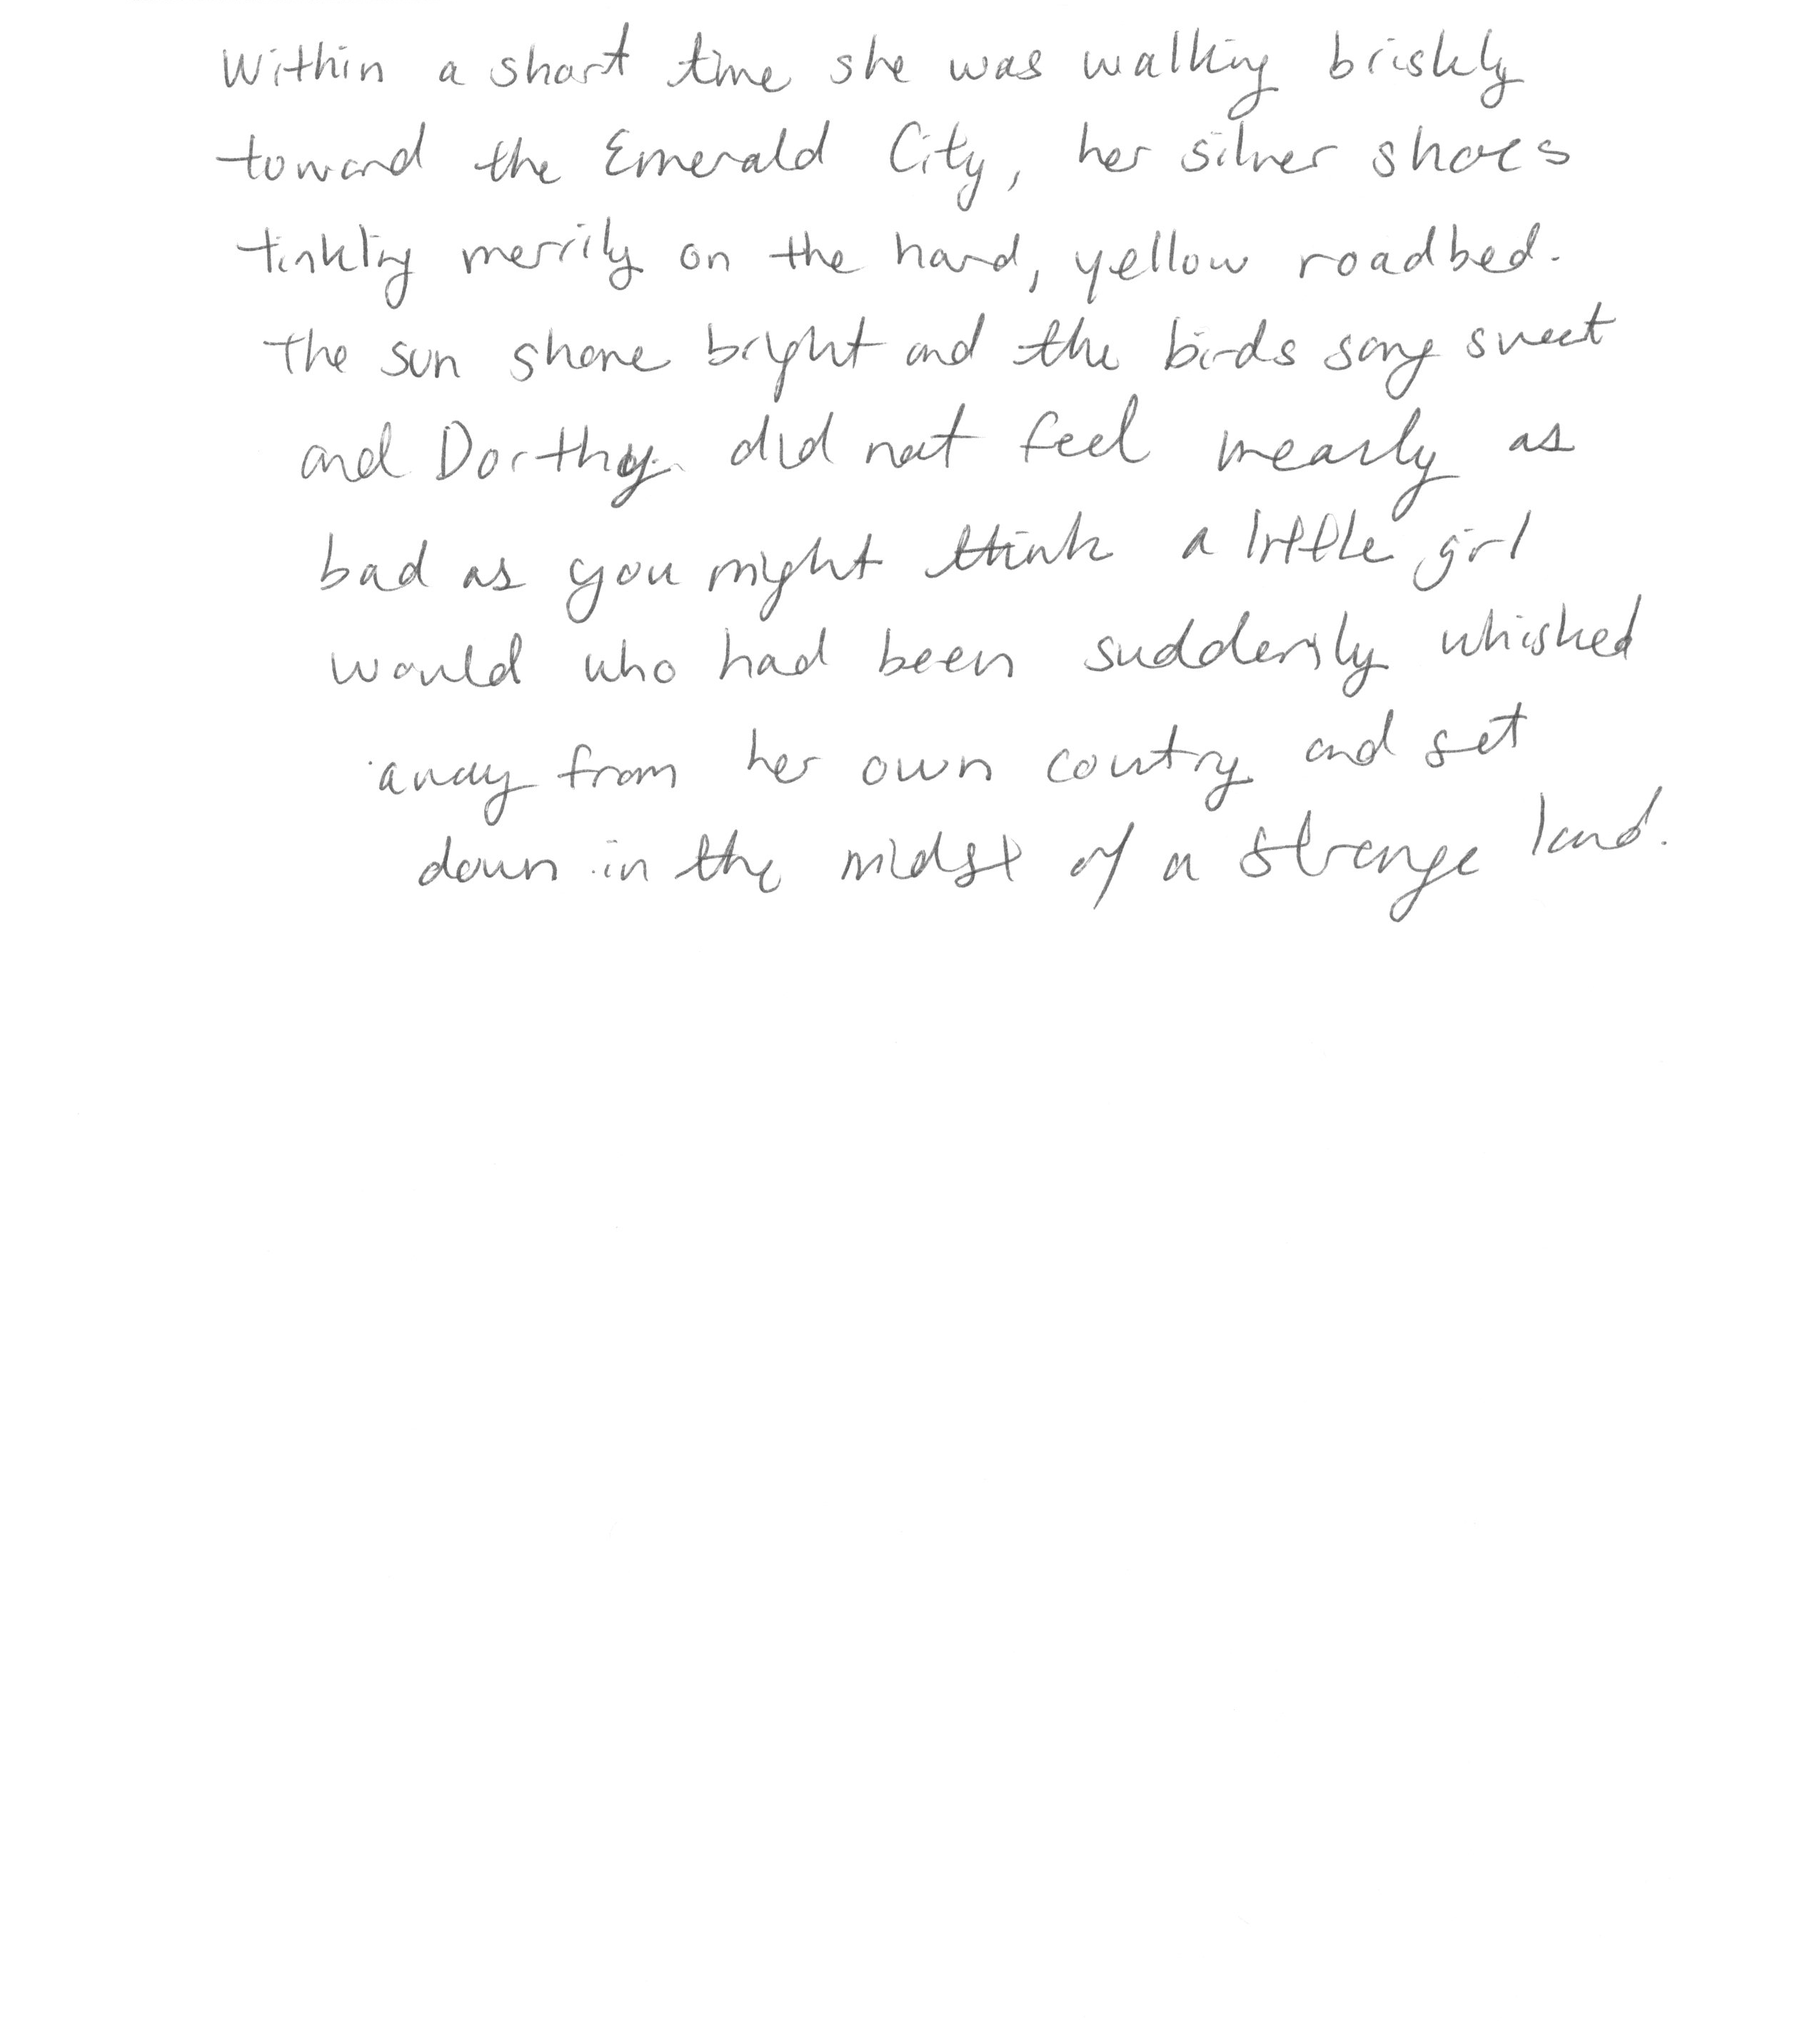 Within a short time she was walking briskly
toward the Emerald City, her silver shoes
tinkling merrily on the hard, yellow roadbed.
the sun shone bright and the birds sang sweet
and Dorthy did not feel nearly as
bad as you might think a little girl
would who had been suddenly whisked
away from her own country and set
down in the midst of a strange land.